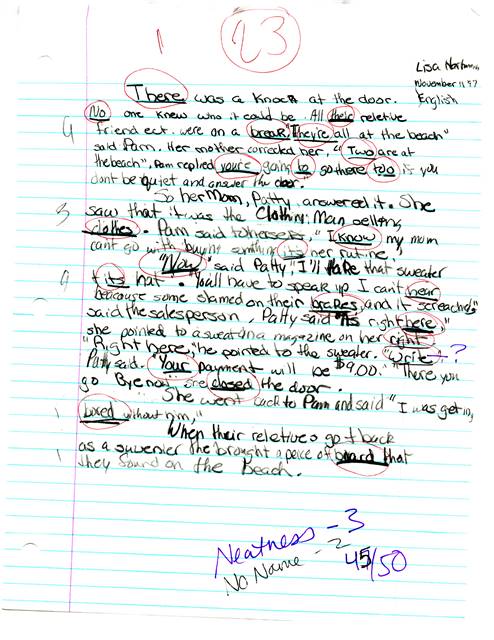 1
23
Lisa
November 11 97
English
There was a knock at the door.
No one knew who it could be. All their reletive
9 friend ect. were on a break, They're all at the beach"
said Pam. Her mother corrected her, "Two are at
the beach", Pam replied your's going to so there too is you
dont be quiet and answer the door."
So her Mom, Patty answered it. She
3 saw that it was the Clothing Man selling
clothes. Pam said to herself, "I know my mom
cant go with buying somthing its her rutine."
"Now" said Patty, "I'll take that sweater
9 + its hat". Youll have to speak up I can't hear
because some slamed on their brakes and it screached,"
said the salesperson, Patty said "Its right here,"
she pointed to a sweat in a magazine on her right
"Right here," he pointed to the sweater. "Write - ?
Patty said. "Your payment will be $9.00." "There you
go Bye now", she closed the door.
She went back to Pam and said "I was getin,
1 bored without him,"
When their relatives got back
1 as a suvenier the brought a peice of board that
they found on the Beach.
Neatness - 3
No Name - 2
45/50